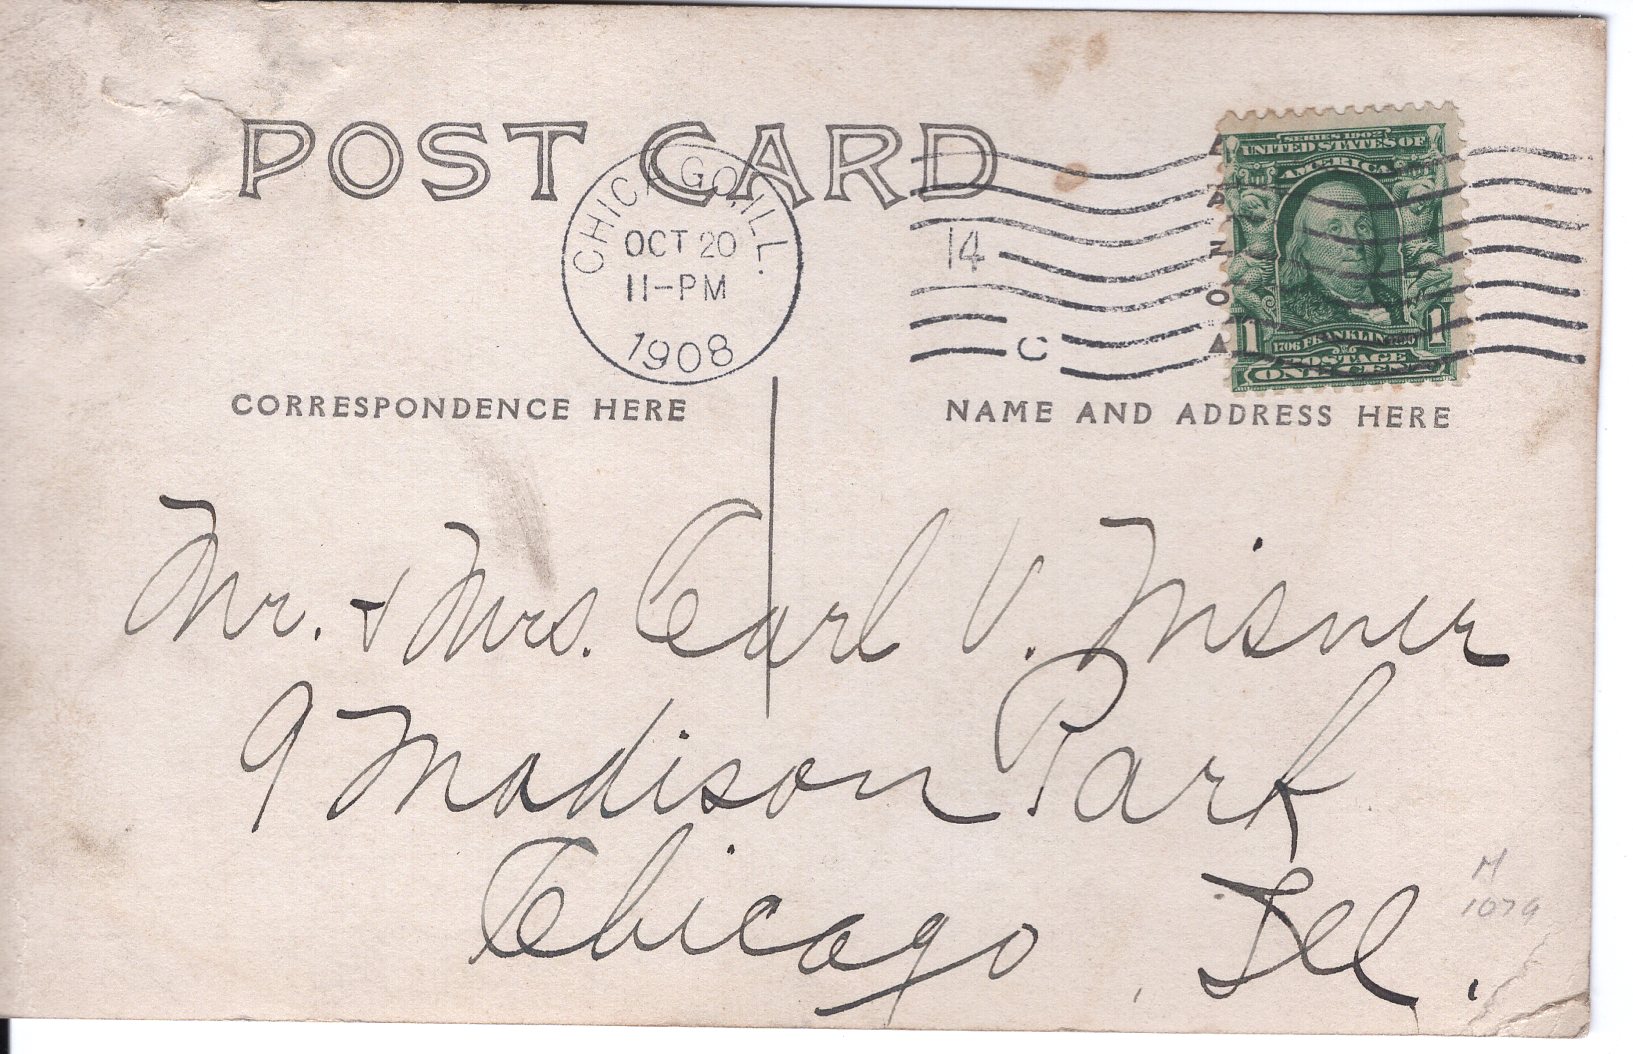 POST CARD
CHICAGO, ILL.
OCT 20
11-PM
1908
14
C
SERIES 1902
UNITED STATES OF
AMERICA
1 1
1706 FRANKLIN 1790
POSTAGE
ONE CENT
CORRESPONDENCE HERE
NAME AND ADDRESS HERE
Mr. & Mrs. Carl V. Wisner
9 Madison Park
Chicago, Ill.
M
1079